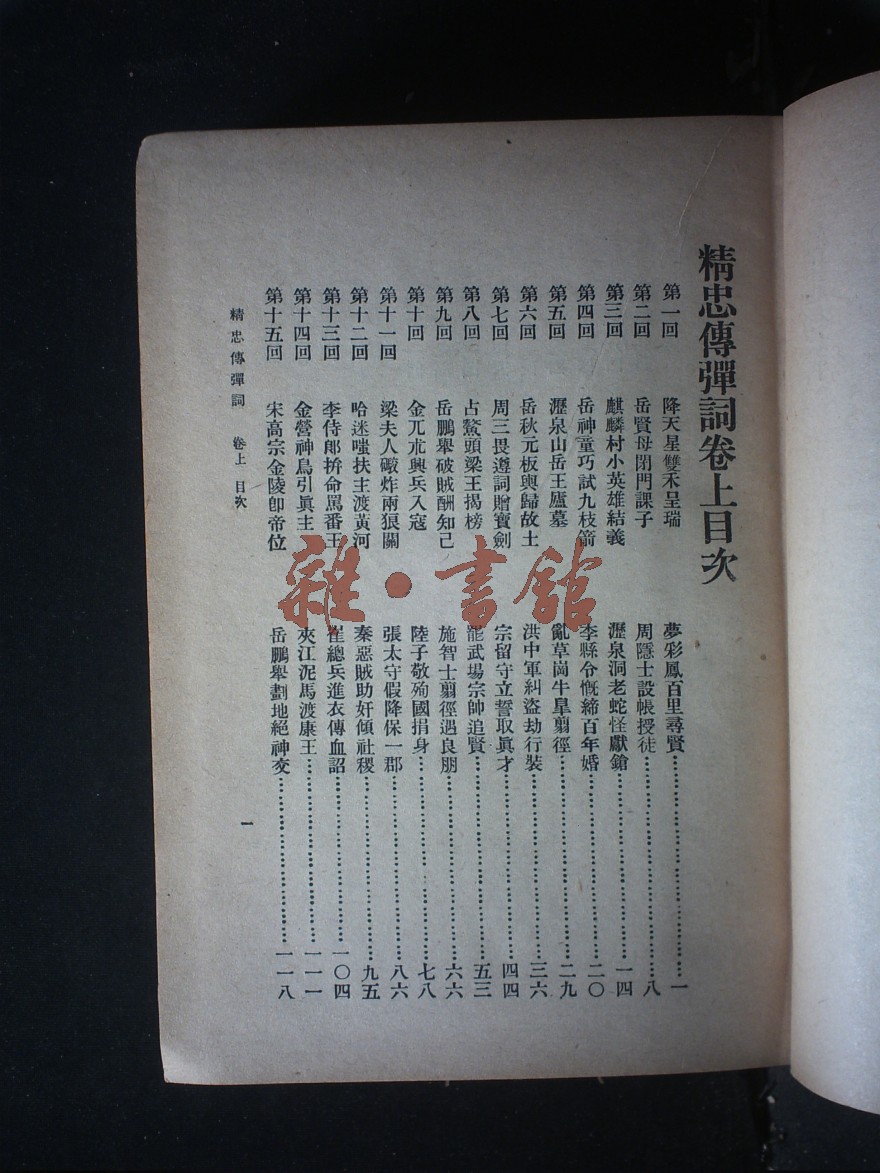 精忠傳彈詞卷上目次
第一回 降天星雙禾呈瑞 夢彩鳳百里尋賢 一
第二回 岳賢母閉門課子 周隱士設帳授徒 八
第三回 麒麟村小英雄結義 瀝泉洞老蛇怪獻鎗 一四
第四回 岳神童巧試九枝箭 李縣令慨締百年婚 二〇
第五回 瀝泉山岳王廬墓 亂草崗牛臯翦徑 二九
第六回 岳秋元板輿歸故土 洪中軍糾盜劫行裝 三六
第七回 周三畏遵詞贈寶劍 宗留守立誓取眞才 四四
第八回 占鰲頭梁王揭榜 罷武場宗帥追賢 五三
第九回 岳鵬舉破賊酬知己 施智士翦徑遇良朋 六六
第十回 金兀朮興兵入寇 陸子敬殉國捐身 七八
第十一回 梁夫人礮炸兩狼關 張太守假降保一郡 八六
第十二回 哈迷嗤扶主渡黃河 秦惡賊助奸傾社稷 九五
第十三回 李侍郎拚命罵番王 崔總兵進衣傳血詔 一〇四
第十四回 金營神鳥引眞主 夾江泥馬渡康王 一一一
第十五回 宋高宗金陵卽帝位 岳鵬舉劃地絕神交 一一八
精忠傳彈詞 卷上 目次
一
雜·書館